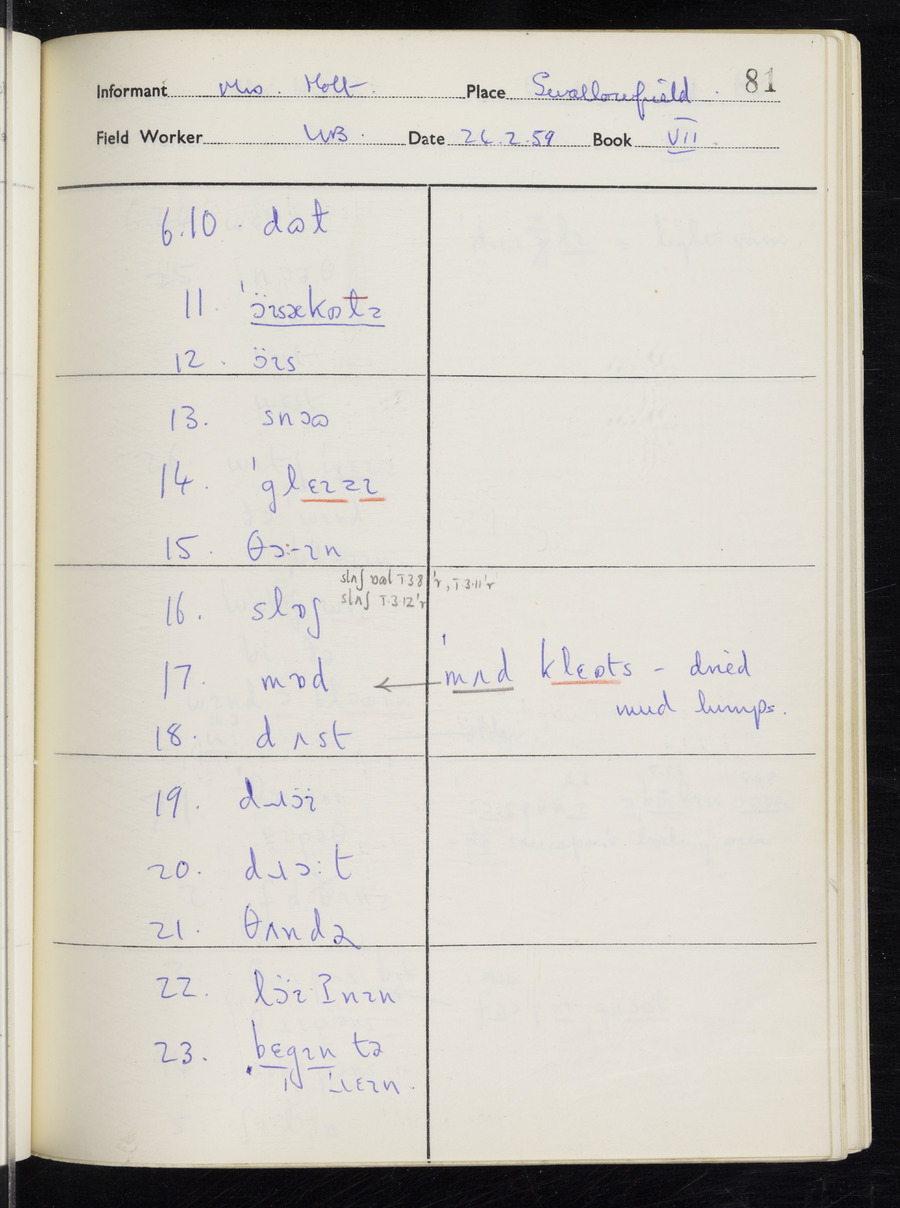 Informant Mrs. Holt. Place Swallowfield. 81
Field Worker WB. Date 26.2.59 Book VII.
6.10. dɷt
11. ˈɔ̈ɪsɪkɷtɪ
12. ɔ̈ɪs
13. snɔɷ
14. ˈglɛɪzɪ
15. θɔ:-ɪn
slʌʃ
slʌʃ T.3.12ʹr
16. slɒʃ
17. mɒd ← ˈmʌd klɛɷts – dried
mud lumps.
18. dʌst
19. dɹɔ̈ɪ
20. dɹɔ:t
21. θʌndə
22. lɔ̈ɪʔnɪn
23. begɪn tə
ˈɹɛɪn.